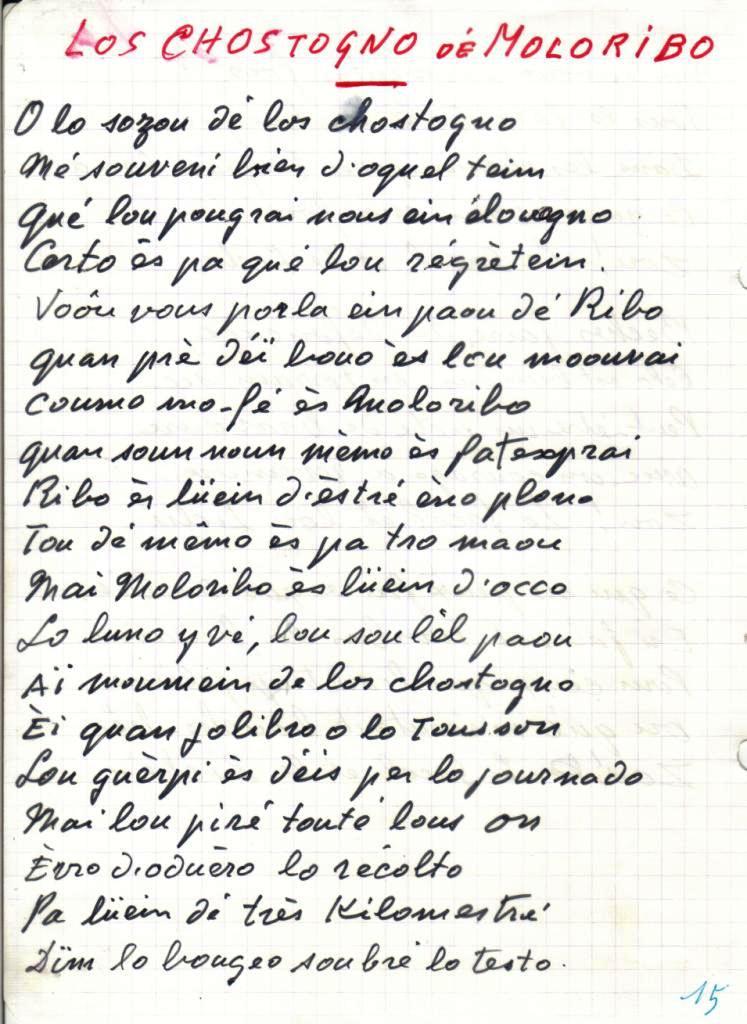 LOS CHOSTOGNO dé MOLORIBO
O lo sozou dé los chostogno
Mé souveni bien d'oquel teim
Qué lou pougrai nous ein élouogno
Certo ès pa qué lou régrètein.
Voôu vous porla ein paou dé Ribo
quan piè déï bouo ès lou moouvai
coumo mo-fé ès Moloribo
quan soun noun mèmo ès fat esprai
Ribo ès lüein d'èstré èno plono
Tou dé mêmo ès pa tro maou
Mai Moloribo ès lüein d'occo
Lo luno y vé, lou soulèl paou
Aï moumein de los chostogno
Èi quan jolibro o lo Toussou
Lou guèrpi ès déis per lo journado
Mai lou piré touté lous on
Èrro d'oduèro lo récolto
Pa lüein dé très Kilomestré
Dïm lo bougeo soubré lo testo.
15